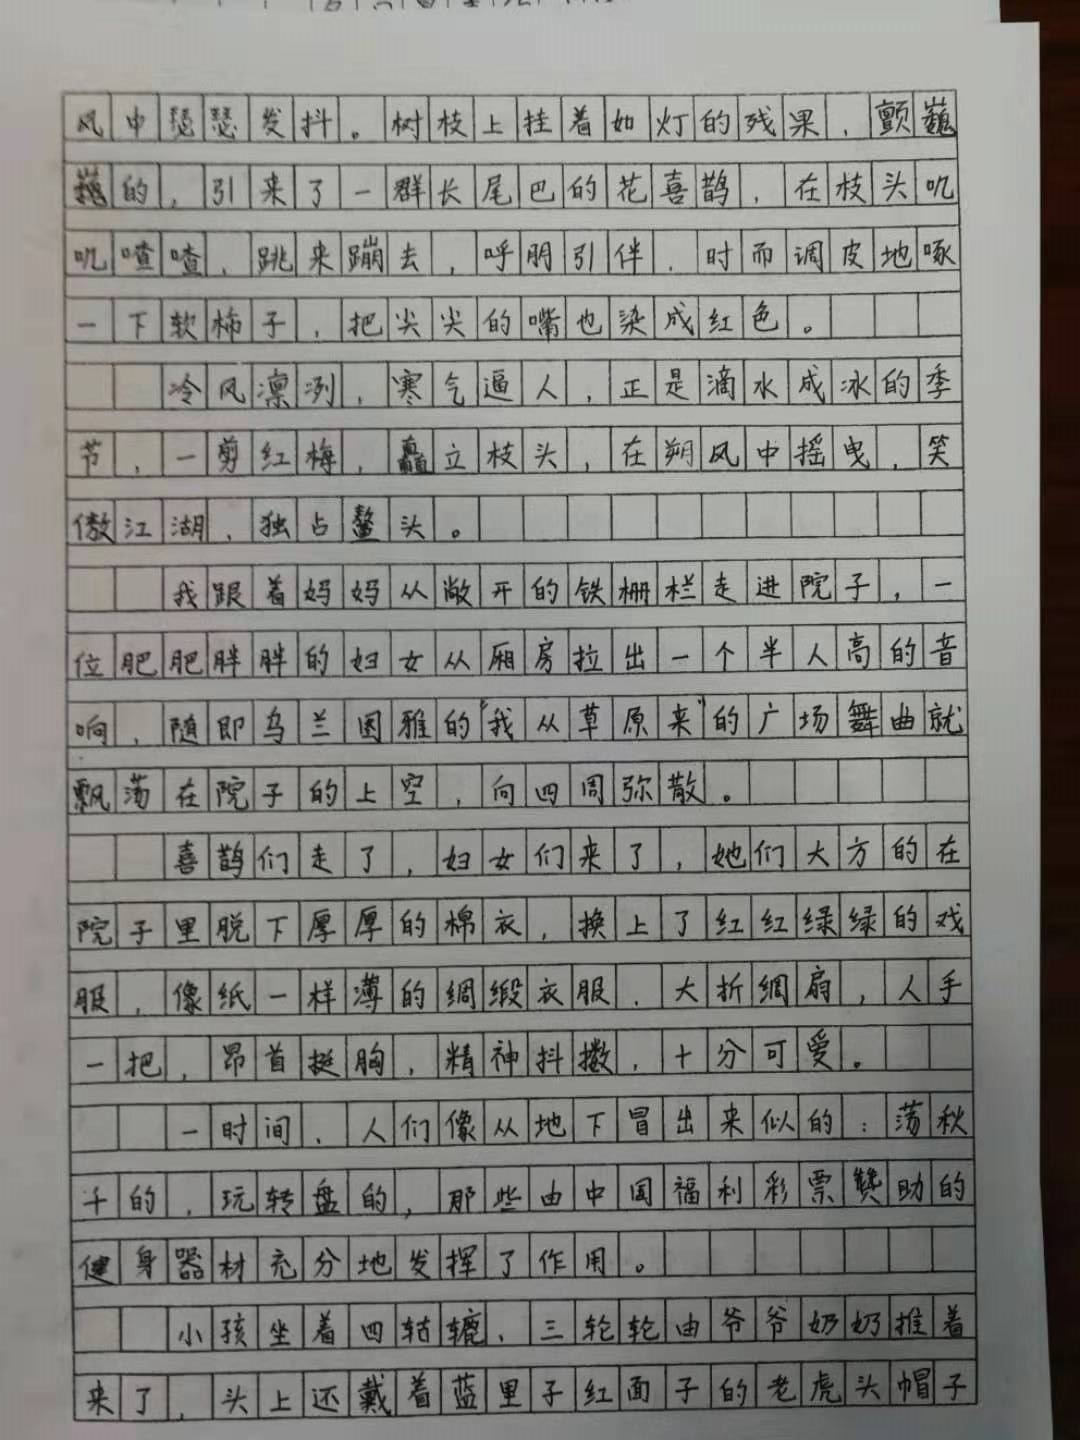 风中瑟瑟发抖。树枝上挂着如灯的残果，颤巍
巍的，引来了一群长尾巴的花喜鹊，在枝头叽
叽喳喳，跳来蹦去，呼朋引伴，时而调皮地啄
一下软柿子，把尖尖的嘴也染成红色。
冷风凛冽，寒气逼人，正是滴水成冰的季
节，一剪红梅，矗立枝头，在朔风中摇曳，笑
傲江湖，独占鳌头。
我跟着妈妈从敞开的铁栅栏走进院子，一
位肥肥胖胖的妇女从厢房拉出一个半人高的音
响，随即乌兰图雅的“我从草原来”的广场舞曲就
飘荡在院子的上空，向四周弥散。
喜鹊们走了，妇女们来了，她们大方的在
院子里脱下厚厚的棉衣，换上了红红绿绿的戏
服，像纸一样薄的绸缎衣服，大折绸扇，人手
一把，昂首挺胸，精神抖擞，十分可爱。
一时间，人们像从地下冒出来似的：荡秋
千的，玩转盘的，那些由中国福利彩票赞助的
健身器材充分地发挥了作用。
小孩坐着四轱辘、三轮轮由爷爷奶奶推着
来了，头上还戴着蓝里子红面子的老虎头帽子